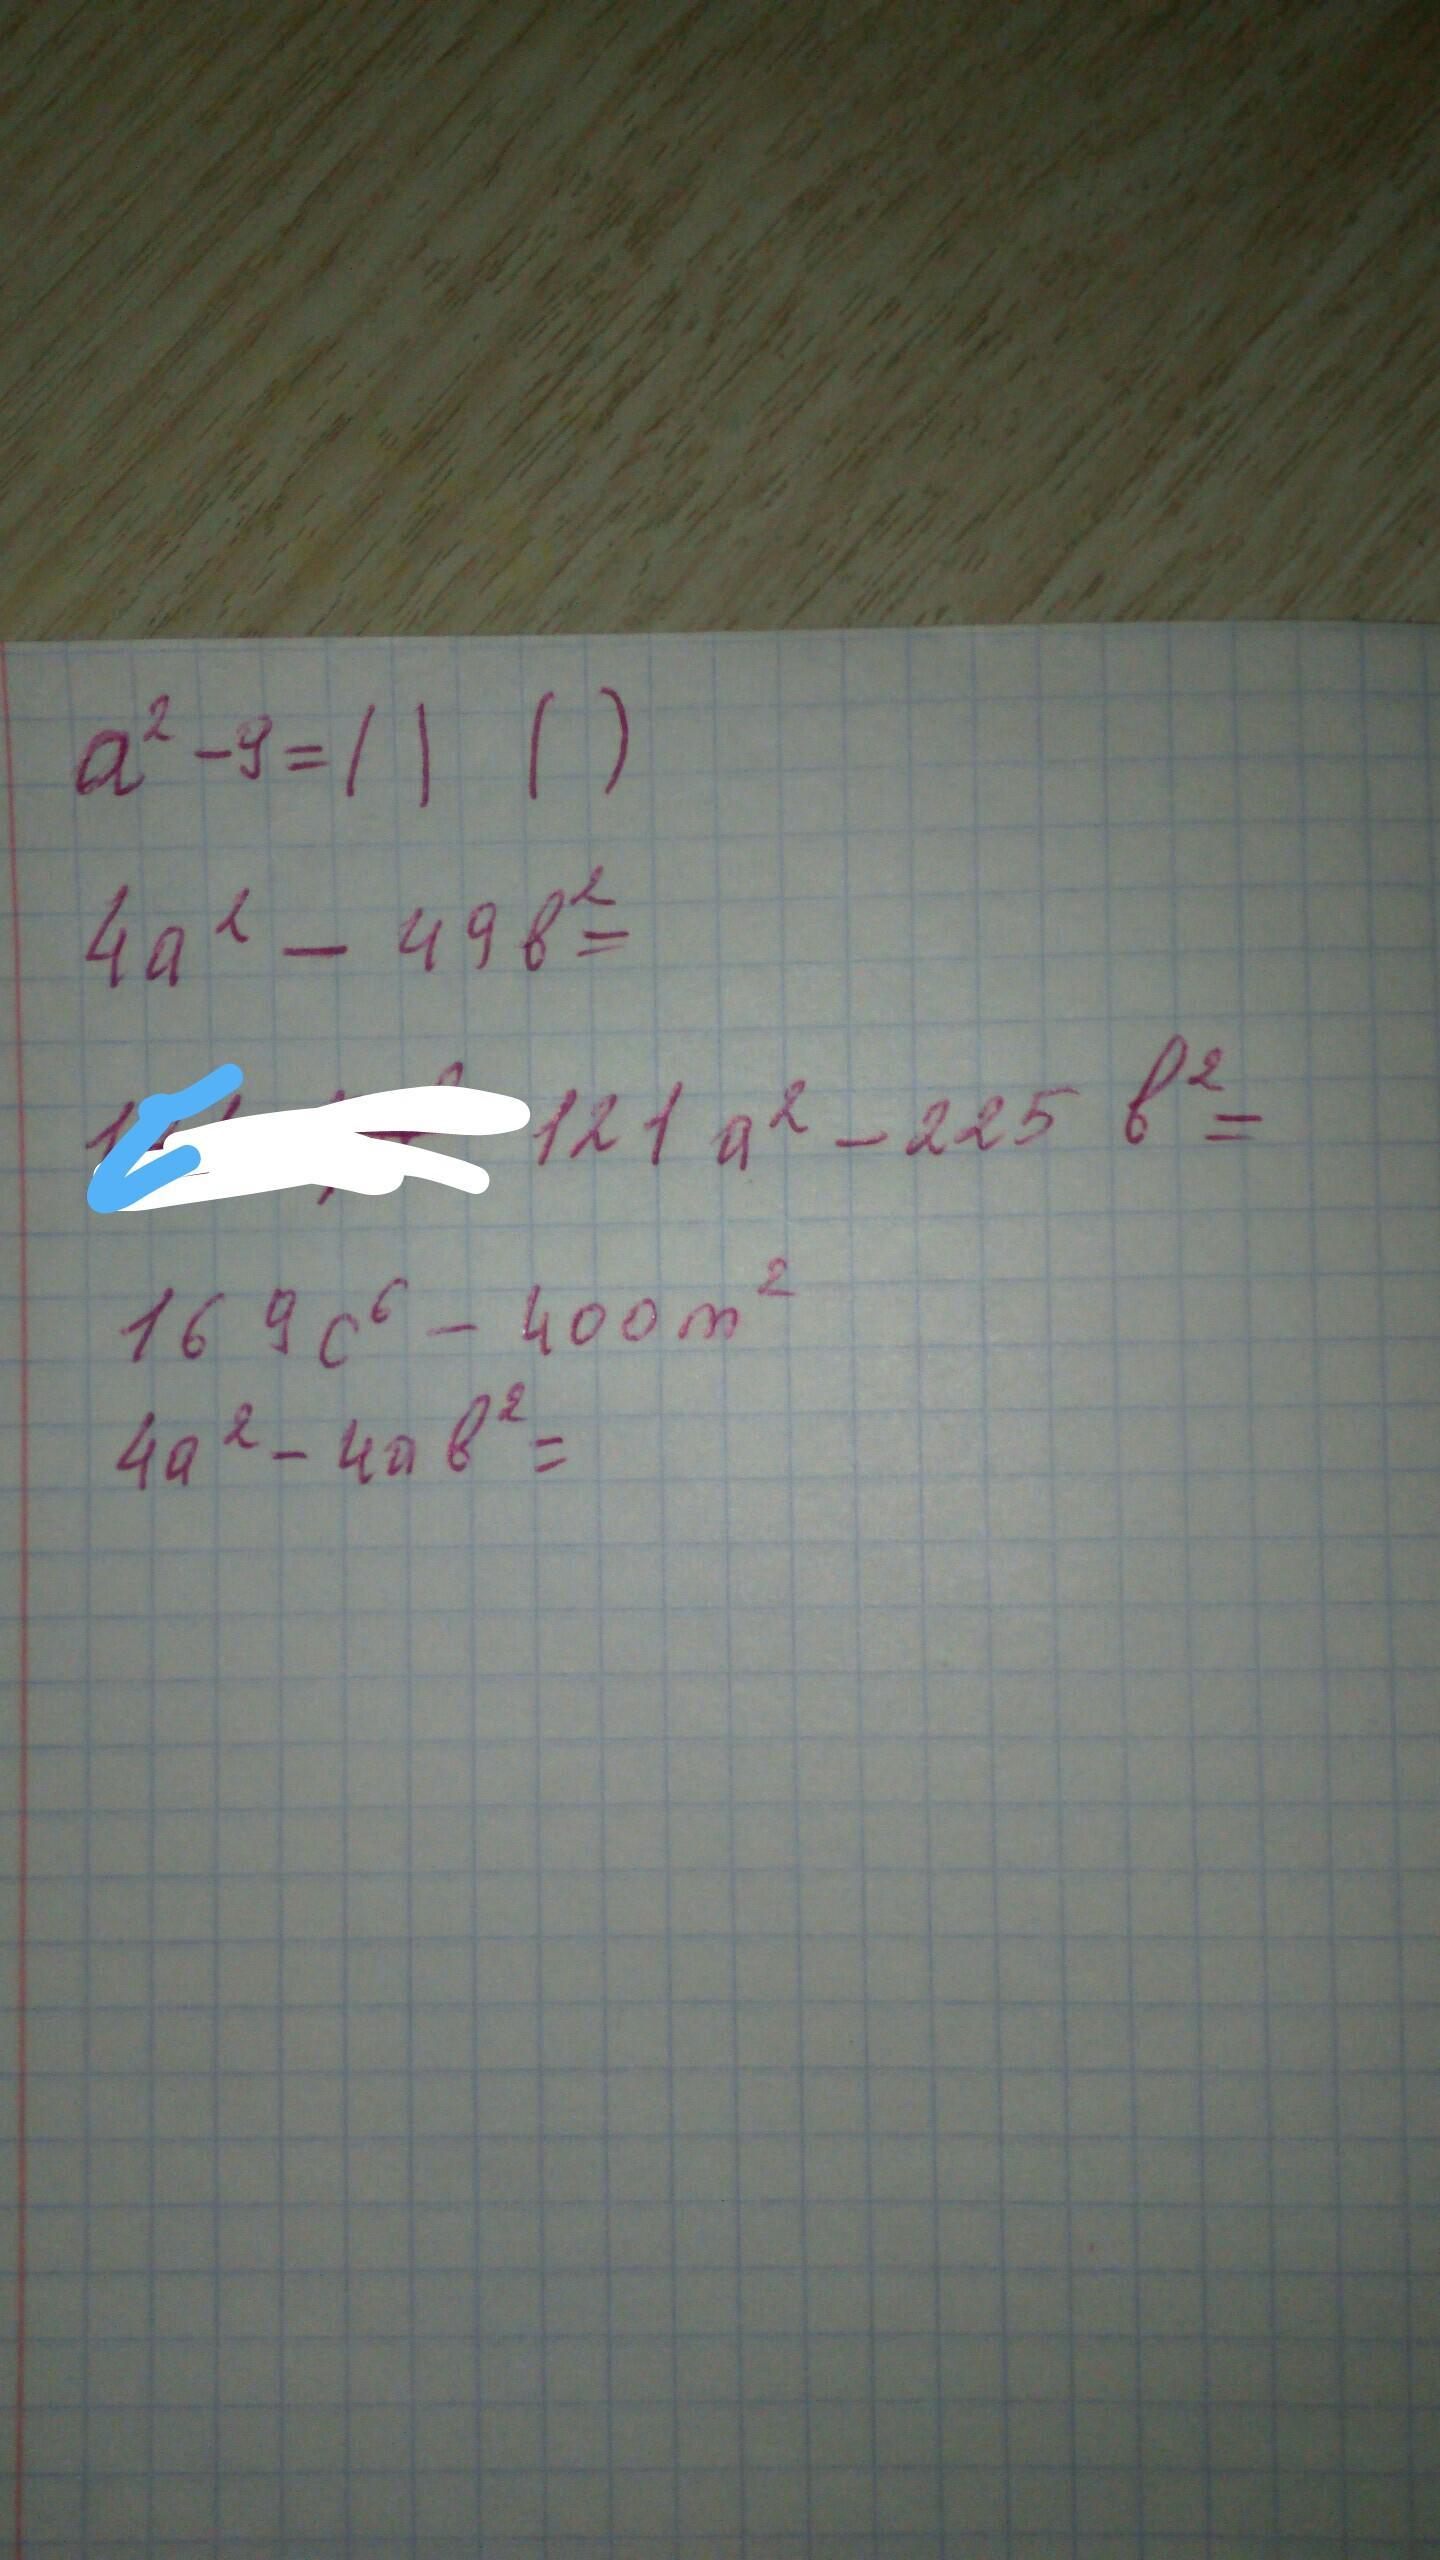 a² - 9 = ( ) ( )
4a² - 49в² =
121a² - 225в² =
169c⁶ - 400m²
4a² - 4aв² =